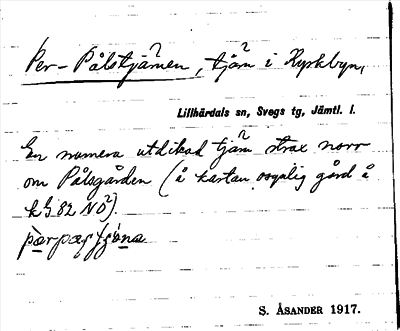 Per-Pålstjärnen, tjärn i Kyrkbyn,
Lillhärdals sn, Svegs tg, Jämtl. l.
En numera utdikad tjärn strax norr
om Pålsgården (å kartan osynlig gård å
82 NO²).
S. ÅSANDER 1917.